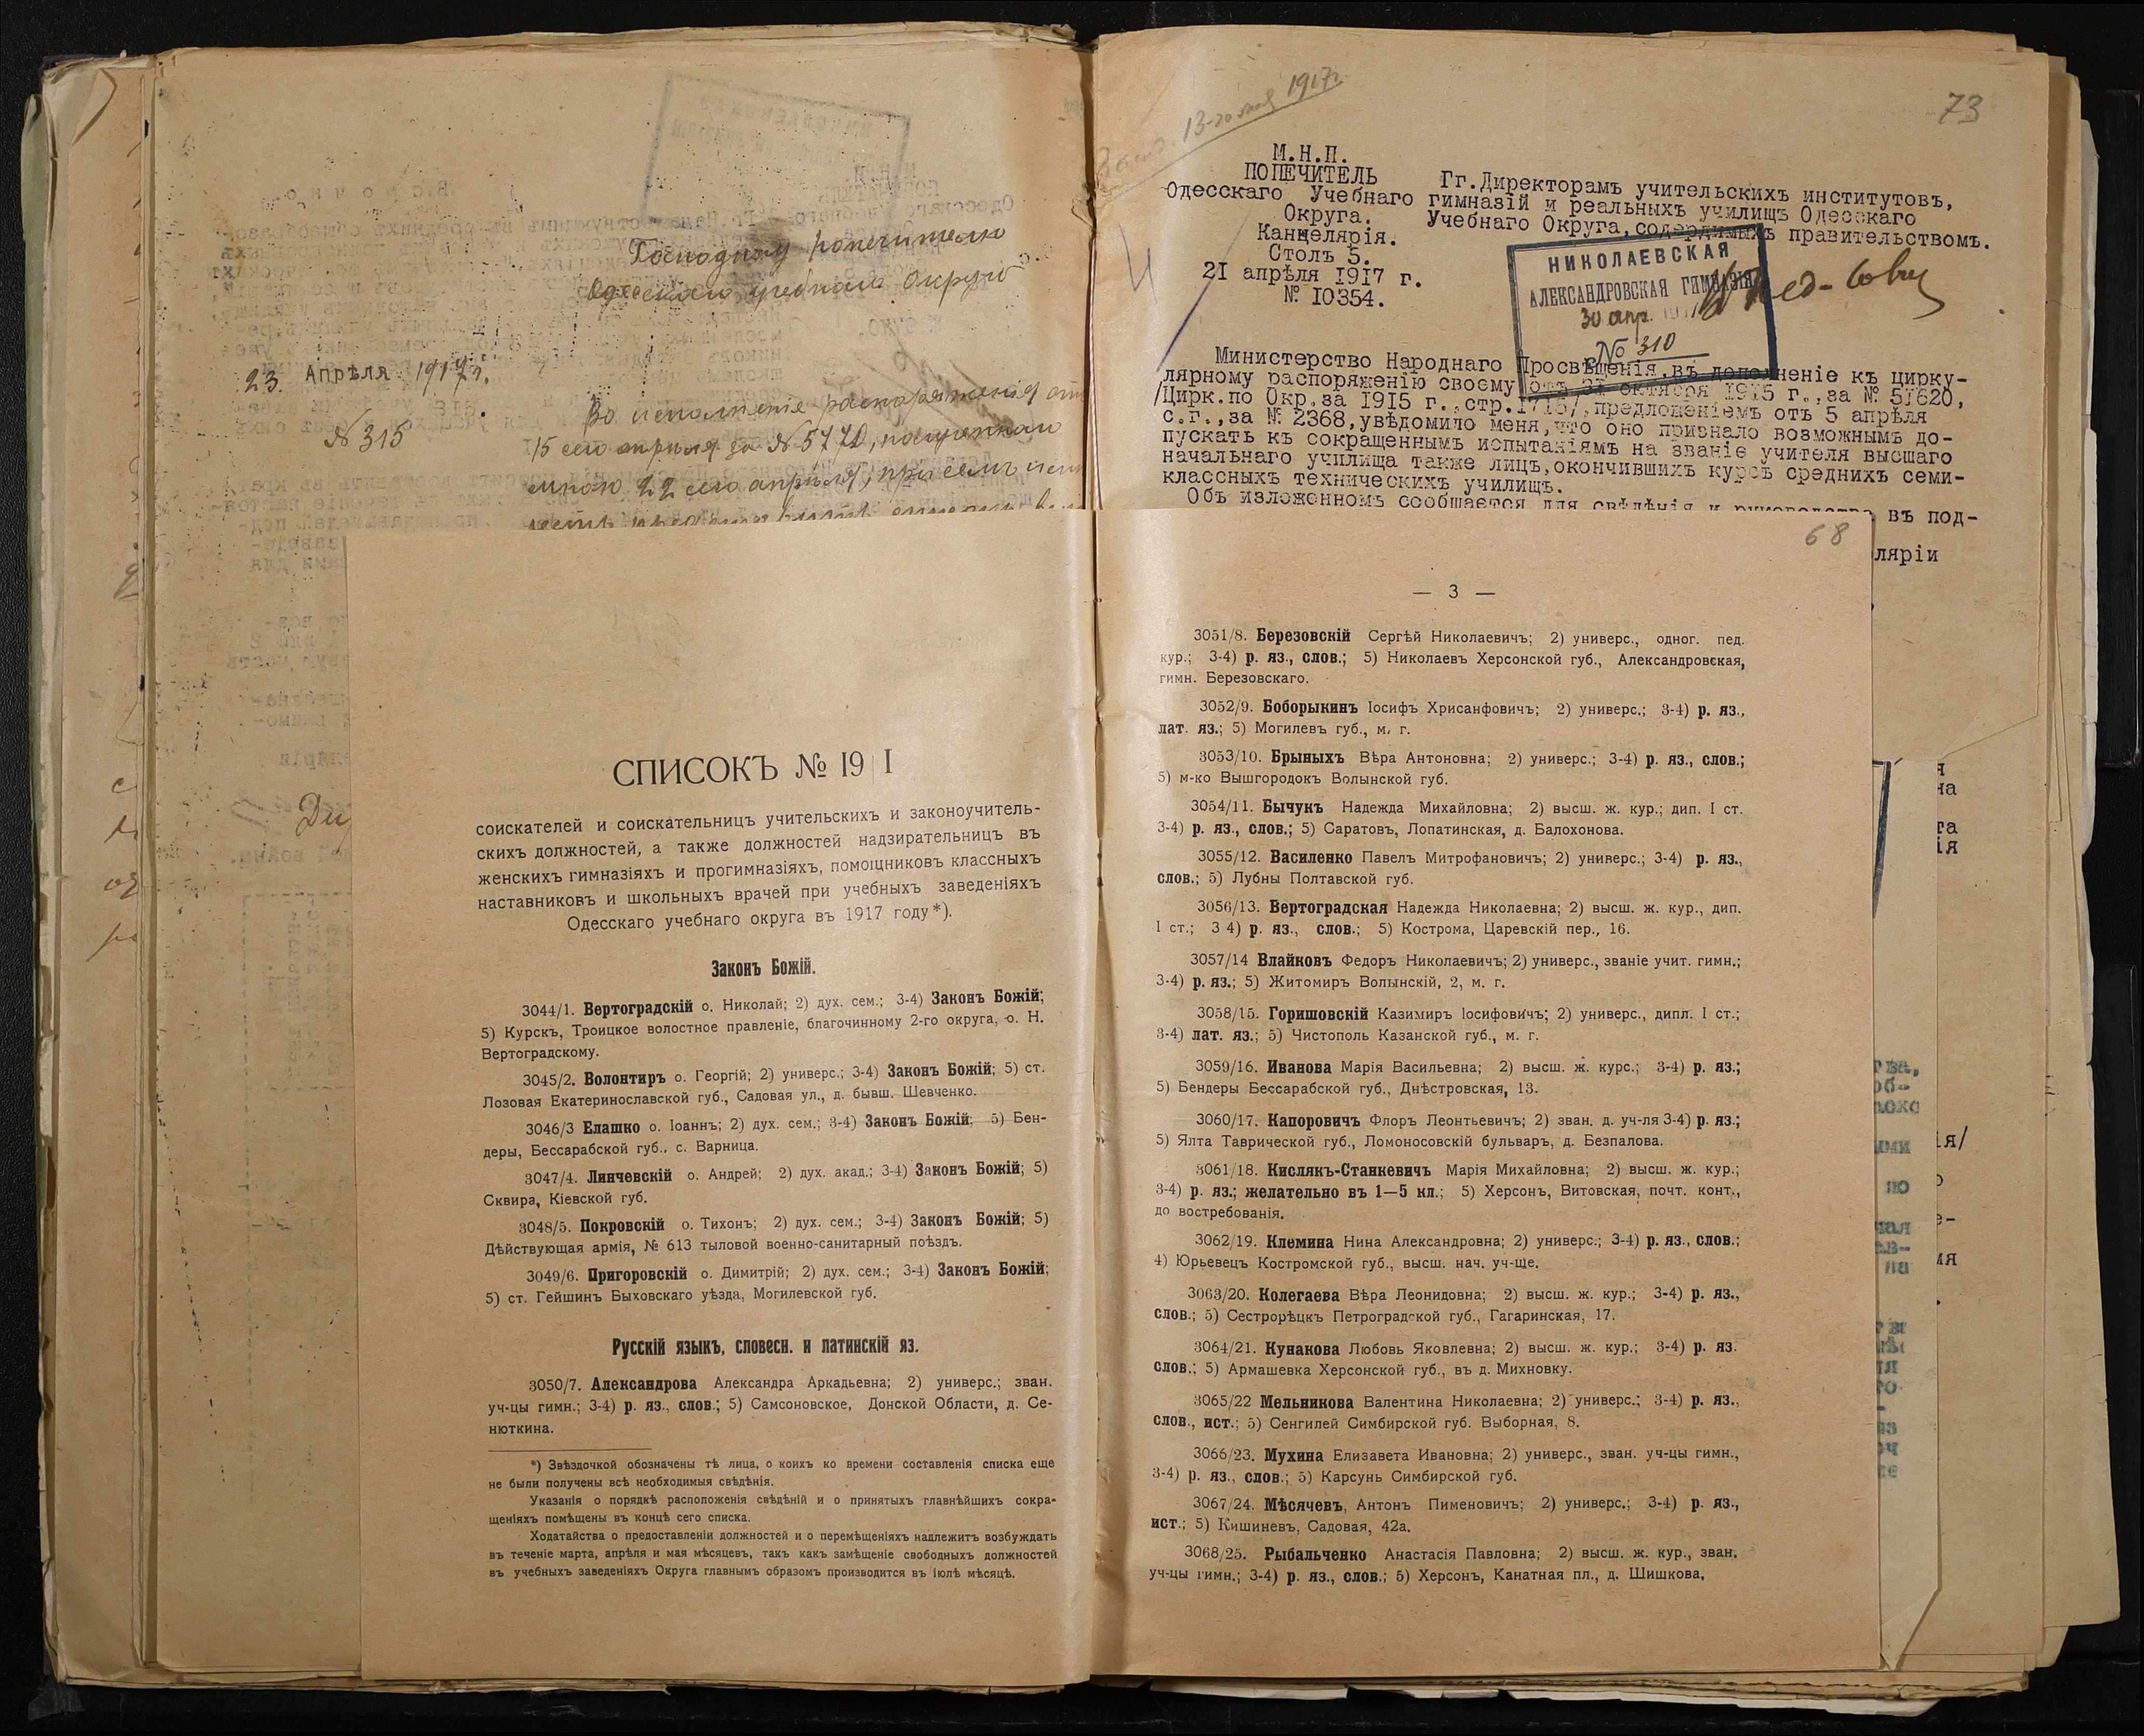 Господину Попечителю
Одесскаго учебнаго Округа
23 Апрѣля 1917 г.
№ 315
Во исполненіе распоряженія отъ
15 сего апрѣля за № 5770, полученнаго
мною 22 сего апрѣля, при семъ
СПИСОКЪ № 19 I
соискателей и соискательницъ учительскихъ и законоучитель-
скихъ должностей, а также должностей надзирательницъ въ
женскихъ гимназіяхъ и прогимназіяхъ, помощниковъ классныхъ
наставниковъ и школьныхъ врачей при учебныхъ заведеніяхъ
Одесскаго учебнаго округа въ 1917 году*).
Законъ Божій.
3044/1. Вертоградскій о. Николай; 2) дух. сем.; 3-4) Законъ Божій;
5) Курскъ, Троицкое волостное правленіе, благочинному 2-го округа, о. Н.
Вертоградскому.
3045/2. Волонтиръ о. Георгій; 2) универс.; 3-4) Законъ Божій; 5) ст.
Лозовая Екатеринославской губ., Садовая ул., д. бывш. Шевченко.
3046/3 Елашко о. Іоаннъ; 2) дух. сем.; 3-4) Законъ Божій; 5) Бен-
деры, Бессарабской губ., с. Варница.
3047/4. Линчевскій о. Андрей; 2) дух. акад.; 3-4) Законъ Божій; 5)
Сквира, Кіевской губ.
3048/5. Покровскій о. Тихонъ; 2) дух. сем.; 3-4) Законъ Божій; 5)
Дѣйствующая армія, № 613 тыловой военно-санитарный поѣздъ.
3049/6. Пригоровскій о. Димитрій; 2) дух. сем.; 3-4) Законъ Божій;
5) ст. Гейшинъ Быховскаго уѣзда, Могилевской губ.
Русскій языкъ, словесн. и латинскій яз.
3050/7. Александрова Александра Аркадьевна; 2) универс.; зван.
уч-цы гимн.; 3-4) р. яз., слов.; 5) Самсоновское, Донской Области, д. Се-
нюткина.
*) Звѣздочкой обозначены тѣ лица, о коихъ ко времени составленія списка еще
не были получены всѣ необходимыя свѣдѣнія.
Указанія о порядкѣ расположенія свѣдѣній и о принятыхъ главнѣйшихъ сокра-
щеніяхъ помѣщены въ концѣ сего списка.
Ходатайства о предоставленіи должностей и о перемѣщеніяхъ надлежитъ возбуждать
въ теченіе марта, апрѣля и мая мѣсяцевъ, такъ какъ замѣщеніе свободныхъ должностей
въ учебныхъ заведеніяхъ Округа главнымъ образомъ производится въ іюлѣ мѣсяцѣ.
13-го мая 1917 г.
73
М.Н.П.
ПОПЕЧИТЕЛЬ
Одесскаго Учебнаго
Округа.
Канцелярія.
Столъ 5.
21 апрѣля 1917 г.
№ 10354.
Гг.Директорамъ учительскихъ институтовъ,
гимназій и реальныхъ училищъ Одесскаго
Учебнаго Округа,содержимыхъ правительствомъ.
НИКОЛАЕВСКАЯ
АЛЕКСАНДРОВСКАЯ ГИМНАЗІЯ
30 апр. 1917
№ 310
Министерство Народнаго Просвѣщенія,въ дополненіе къ цирку-
лярному распоряженію своему отъ 31 октября 1915 г.,за № 51620,
/Цирк.по Окр.за 1915 г.,стр.1715/,предложеніемъ отъ 5 апрѣля
с.г.,за № 2368,увѣдомило меня,что оно признало возможнымъ до-
пускать къ сокращеннымъ испытаніямъ на званіе учителя высшаго
начальнаго училища также лицъ,окончившихъ курсъ среднихъ семи-
классныхъ техническихъ училищъ.
Объ изложенномъ сообщается для свѣдѣнія и руководства въ под-
ляріи
68
— 3 —
3051/8. Березовскій Сергѣй Николаевичъ; 2) универс., одног. пед.
кур.; 3-4) р. яз., слов.; 5) Николаевъ Херсонской губ., Александровская,
гимн. Березовскаго.
3052/9. Боборыкинъ Іосифъ Хрисанфовичъ; 2) универс.; 3-4) р. яз.,
лат. яз.; 5) Могилевъ губ., м. г.
3053/10. Брыныхъ Вѣра Антоновна; 2) универс.; 3-4) р. яз., слов.;
5) м-ко Вышгородокъ Волынской губ.
3054/11. Бычукъ Надежда Михайловна; 2) высш. ж. кур.; дип. I ст.
3-4) р. яз., слов.; 5) Саратовъ, Лопатинская, д. Балохонова.
3055/12. Василенко Павелъ Митрофановичъ; 2) универс.; 3-4) р. яз.,
слов.; 5) Лубны Полтавской губ.
3056/13. Вертоградская Надежда Николаевна; 2) высш. ж. кур., дип.
I ст.; 3 4) р. яз., слов.; 5) Кострома, Царевскій пер., 16.
3057/14 Влайковъ Федоръ Николаевичъ; 2) универс., званіе учит. гимн.;
3-4) р. яз.; 5) Житомиръ Волынскій, 2, м. г.
3058/15. Горишовскій Казимиръ Іосифовичъ; 2) универс., дипл. I ст.;
3-4) лат. яз.; 5) Чистополь Казанской губ., м. г.
3059/16. Иванова Марія Васильевна; 2) высш. ж. курс.; 3-4) р. яз.;
5) Бендеры Бессарабской губ., Днѣстровская, 13.
3060/17. Капоровичъ Флоръ Леонтьевичъ; 2) зван. д. уч-ля 3-4) р. яз.;
5) Ялта Таврической губ., Ломоносовскій бульваръ, д. Безпалова.
3061/18. Кислякъ-Станкевичъ Марія Михайловна; 2) высш. ж. кур.;
3-4) р. яз.; желательно въ 1—5 кл.; 5) Херсонъ, Витовская, почт. конт.,
до востребованія.
3062/19. Клемина Нина Александровна; 2) универс.; 3-4) р. яз., слов.;
4) Юрьевецъ Костромской губ., высш. нач. уч-ще.
3063/20. Колегаева Вѣра Леонидовна; 2) высш. ж. кур.; 3-4) р. яз.,
слов.; 5) Сестрорѣцкъ Петроградской губ., Гагаринская, 17.
3064/21. Кунакова Любовь Яковлевна; 2) высш. ж. кур.; 3-4) р. яз.
слов.; 5) Армашевка Херсонской губ., въ д. Михновку.
3065/22 Мельникова Валентина Николаевна; 2) универс.; 3-4) р. яз.,
слов., ист.; 5) Сенгилей Симбирской губ. Выборная, 8.
3066/23. Мухина Елизавета Ивановна; 2) универс., зван. уч-цы гимн.,
3-4) р. яз., слов.; 5) Карсунь Симбирской губ.
3067/24. Мѣсячевъ, Антонъ Пименовичъ; 2) универс.; 3-4) р. яз.,
ист.; 5) Кишиневъ, Садовая, 42а.
3068/25. Рыбальченко Анастасія Павловна; 2) высш. ж. кур., зван.
уч-цы гимн.; 3-4) р. яз., слов.; 5) Херсонъ, Канатная пл., д. Шишкова.